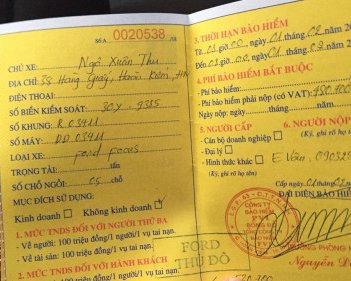 Số A 0020538 /08
CHỦ XE: Ngô Xuân Thu
ĐỊA CHỈ: 38 Hàng Giấy, Hoàn Kiếm, HN
ĐIỆN THOẠI:
SỐ BIỂN KIỂM SOÁT: 30Y - 9385
SỐ KHUNG: R 03411
SỐ MÁY: DD 03411
LOẠI XE: Ford Focus
TRỌNG TẢI: tấn
SỐ CHỖ NGỒI: 05 chỗ
MỤC ĐÍCH SỬ DỤNG:
Kinh doanh □ Không kinh doanh
1. MỨC TNDS ĐỐI VỚI NGƯỜI THỨ BA
- Về người: 100 triệu đồng/1 người/1 vụ tai nạn.
- Về tài sản: 100 triệu đồng/1 vụ tai nạn.
2. MỨC TNDS ĐỐI VỚI HÀNH KHÁCH
100 triệu đồng/1 người/1 vụ tai nạn.
FORD
THỦ ĐÔ
3. THỜI HẠN BẢO HIỂM
Từ 01 giờ 00, ngày 01 tháng 02 năm 20
Đến 01 giờ 00, ngày 01 tháng 02 năm 20
4. PHÍ BẢO HIỂM BẮT BUỘC
- Phí bảo hiểm:
- Phí bảo hiểm phải nộp (có VAT): 480.700
Ngày nộp: ngày tháng năm
5. NGƯỜI CẤP
- Cán bộ doanh nghiệp □
- Đại lý □
- Hình thức khác □
(Ký, ghi rõ họ tên)
6. NGƯỜI NỘP
(Ký, ghi rõ họ
E Vân. 090323
Cấp ngày 01 tháng 02
ĐẠI DIỆN BẢO HIỂM
CÔNG TY
BẢO HIỂM
PHÒNG
Nguyễn